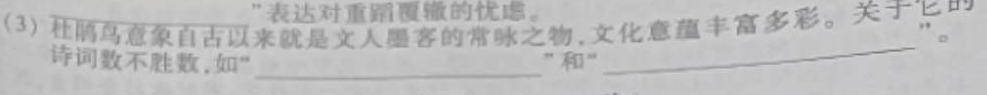 ________"表达对重蹈覆辙的忧虑。
(3) 杜鹃鸟意象自古以来就是文人墨客的常咏之物,文化意蕴丰富多彩。关于它的
诗词数不胜数,如"________"和"________"。